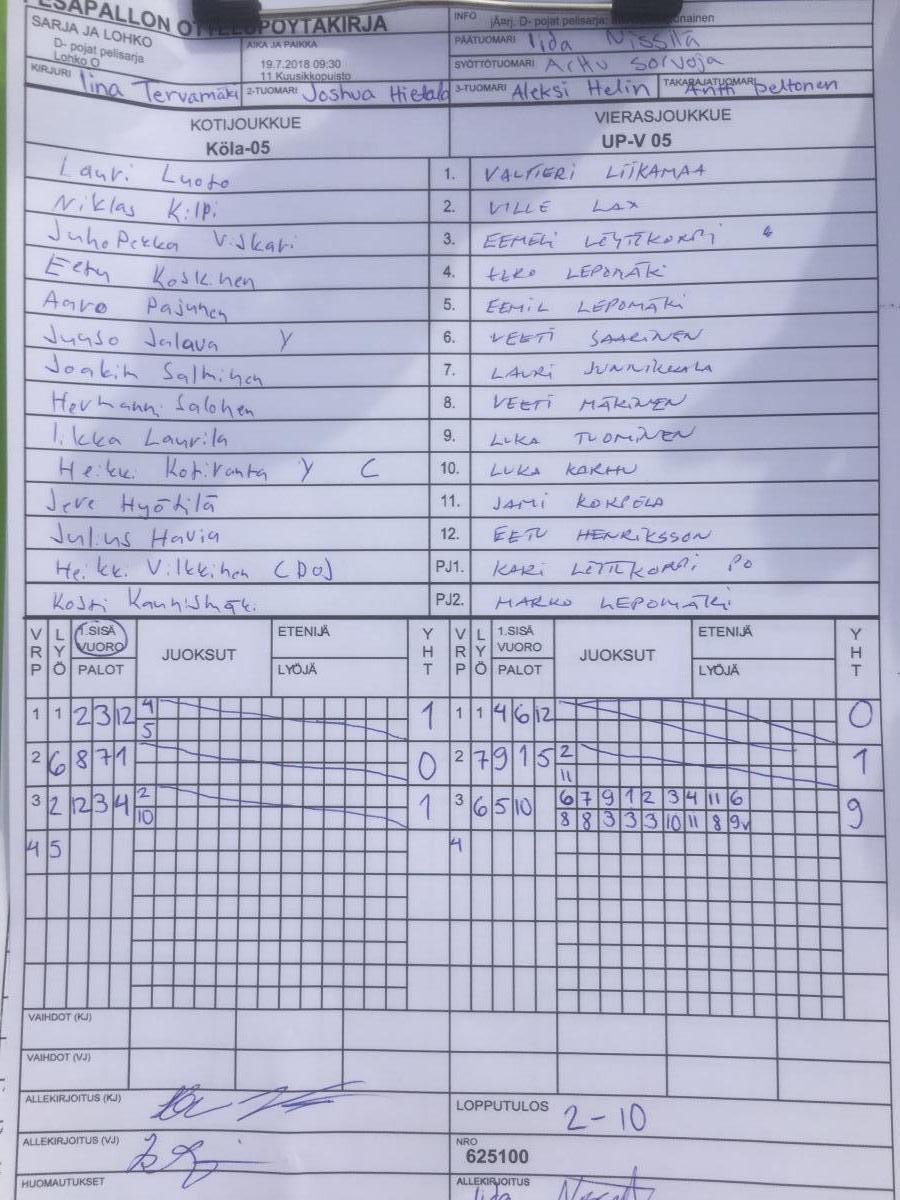 PESÄPALLON OTTELUPÖYTÄKIRJA
SARJA JA LOHKO
D- pojat pelisarja
Lohko O
AIKA JA PAIKKA
19.7.2018 09:30
11 Kuusikkopuisto
INFO jÄsrj. D- pojat pelisarja:
PÄÄTUOMARI Iida Nissilä
SYÖTTÖTUOMARI Arttu Sorvoja
KIRJURI Iina Tervamäki 2-TUOMARI Joshua Hietala 3-TUOMARI Aleksi Helin TAKARAJATUOMARI Antti Peltonen
KOTIJOUKKUE VIERASJOUKKUE
Köla-05 UP-V 05
Lauri Luoto 1. VALTTERI LIIKAMAA
Niklas Kilpi 2. VILLE LAX
JuhoPekka Viskari 3. EEMELI LÖYTTKORPI
Eetu Koskinen 4. EERO LEPOMÄKI
Aaro Pajunen 5. EEMIL LEPOMÄKI
Juuso Jalava Y 6. VEETI SAARINEN
Joakim Salminen 7. LAURI JUNNIKKALA
Hermanni Salonen 8. VEETI MÄKINEN
Iikka Laurila 9. LUKA TUOMINEN
Heikki Kotiranta Y C 10. LUKA KARHU
Jere Hyötilä 11. JAMI KORPELA
Julius Havia 12. EETU HENRIKSSON
Heikki Vilkkinen (DO) PJ1. KARI PO
Kosti Kaunismäki PJ2. MARKO LEPOMÄKI
VRP LYÖ 1.SISÄ VUORO PALOT JUOKSUT ETENIJÄ LYÖJÄ YHT VRP LYÖ 1.SISÄ VUORO PALOT JUOKSUT ETENIJÄ LYÖJÄ YHT
1 1 2 3 12 4 1 1 1 4 6 12 0
5
2 6 8 7 1 0 2 7 9 1 5 2 1
11
3 2 12 3 4 2 1 3 6 5 10 6 7 9 1 2 3 4 11 6 9
10 8 8 3 3 3 10 11 8 9v
4 5 4
VAIHDOT (KJ)
VAIHDOT (VJ)
ALLEKIRJOITUS (KJ)
LOPPUTULOS 2-10
ALLEKIRJOITUS (VJ)
NRO
625100
HUOMAUTUKSET
ALLEKIRJOITUS
Iida